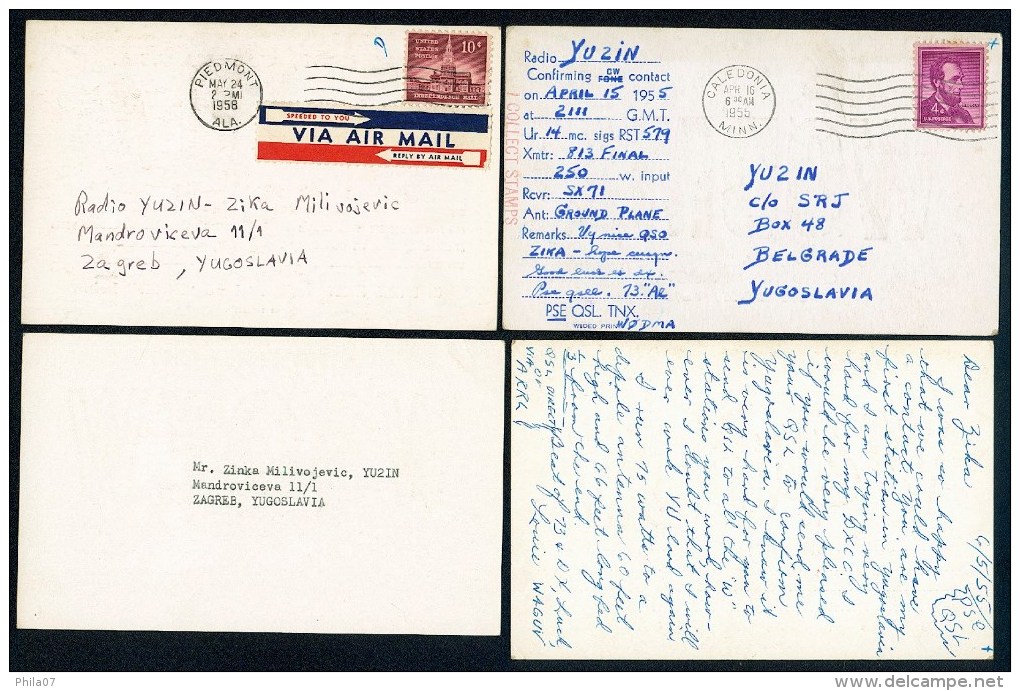 PIEDMONT
MAY 24
2 PM
1958
ALA.
UNITED STATES POSTAGE
10¢
INDEPENDENCE HALL
SPEEDED TO YOU
VIA AIR MAIL
REPLY BY AIR MAIL
Radio YU2IN- Zika Milivojevic
Mandroviceva 11/1
Zagreb, YUGOSLAVIA
I COLLECT STAMPS
Radio YU2IN
Confirming CW FONE contact
on APRIL 15 1955
at 2111 G.M.T.
Ur 14 mc. sigs RST 579
Xmtr: 813 FINAL
250 w. input
Rcvr: SX71
Ant: GROUND PLANE
Remarks Vy nice QSO
ZIKA - hope cuagn.
Good luck es dx.
Pse qsll. 73. "Al"
PSE QSL. TNX.
WØDMA
CALEDONIA
APR 16
6 30 AM
1955
MINN.
4¢
U.S. POSTAGE
YU2IN
c/o SRJ
BOX 48
BELGRADE
YUGOSLAVIA
Mr. Zinka Milivojevic, YU2IN
Mandroviceva 11/1
ZAGREB, YUGOSLAVIA
6/5/55
Dear Zika
I was so happy
that we could have
a contact. You are my
first station in Yugoslavia
and I am trying very
hard for my DXCC. I
would be very pleased
if you would send me
your QSL to confirm
Yugoslavia. I know it
is very hard for you to
send QSL to all the W
stations you work, how-
ever I doubt that I will
ever work YU land again
I run 75 watts to a
dipole antenna 60 feet
high and 66 feet long fed
1/3 from the end
Best of 73 & DX, Luck,
Louie
QSL DIRECT
OR
VIA ARRL
Phila07
www.delcampe.net